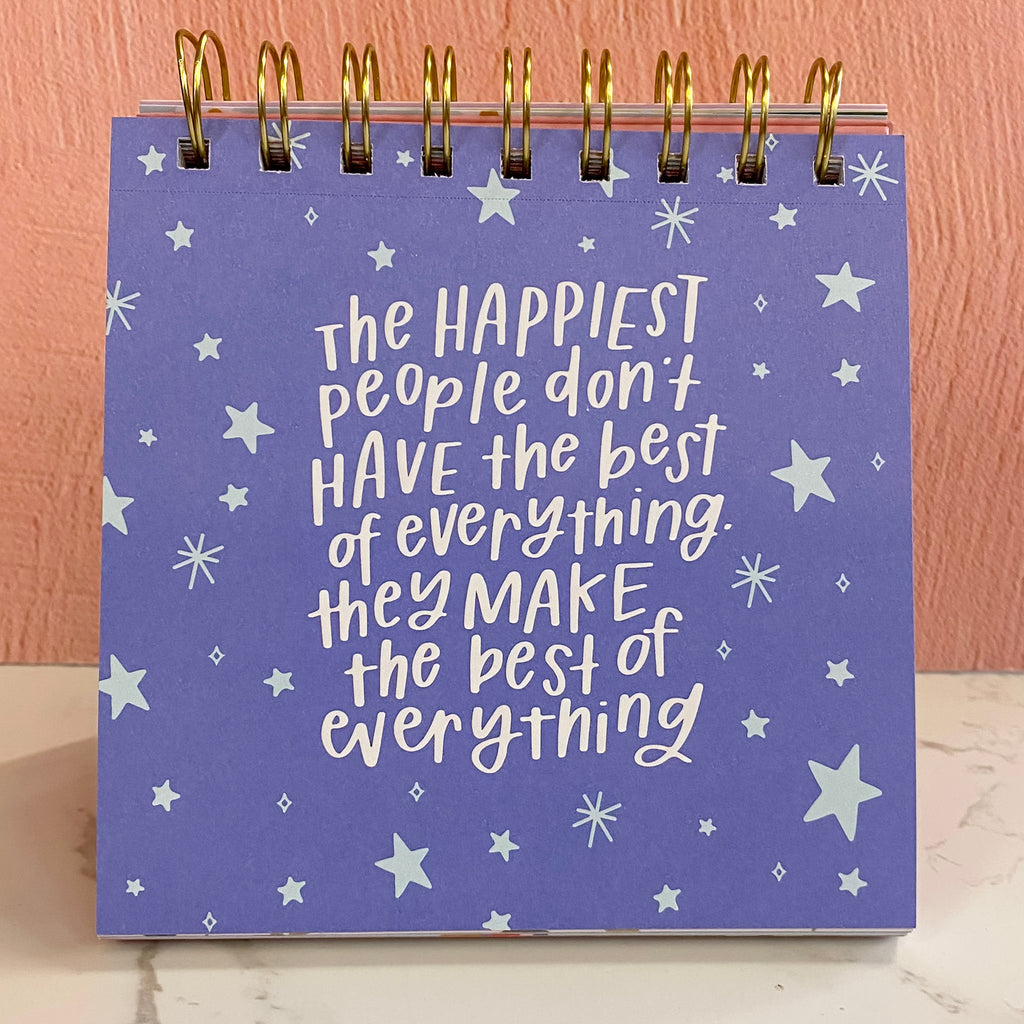 The HAPPIEST
people don't
HAVE the best
of everything.
they MAKE
the best of
everything